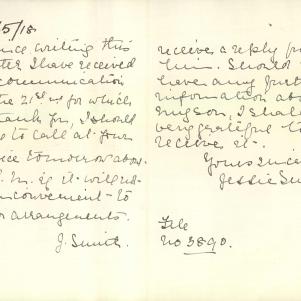 5/18
since writing this
letter I have received
communication
the 21st for which
thank you, I should
to call at your
office tomorrow
inconvenient to
arrangements.
J. Smith.
receive a reply
him. Should
have any
information
my son, I shall
very grateful to
receive it.
Yours
Jessie
File
No 3890.